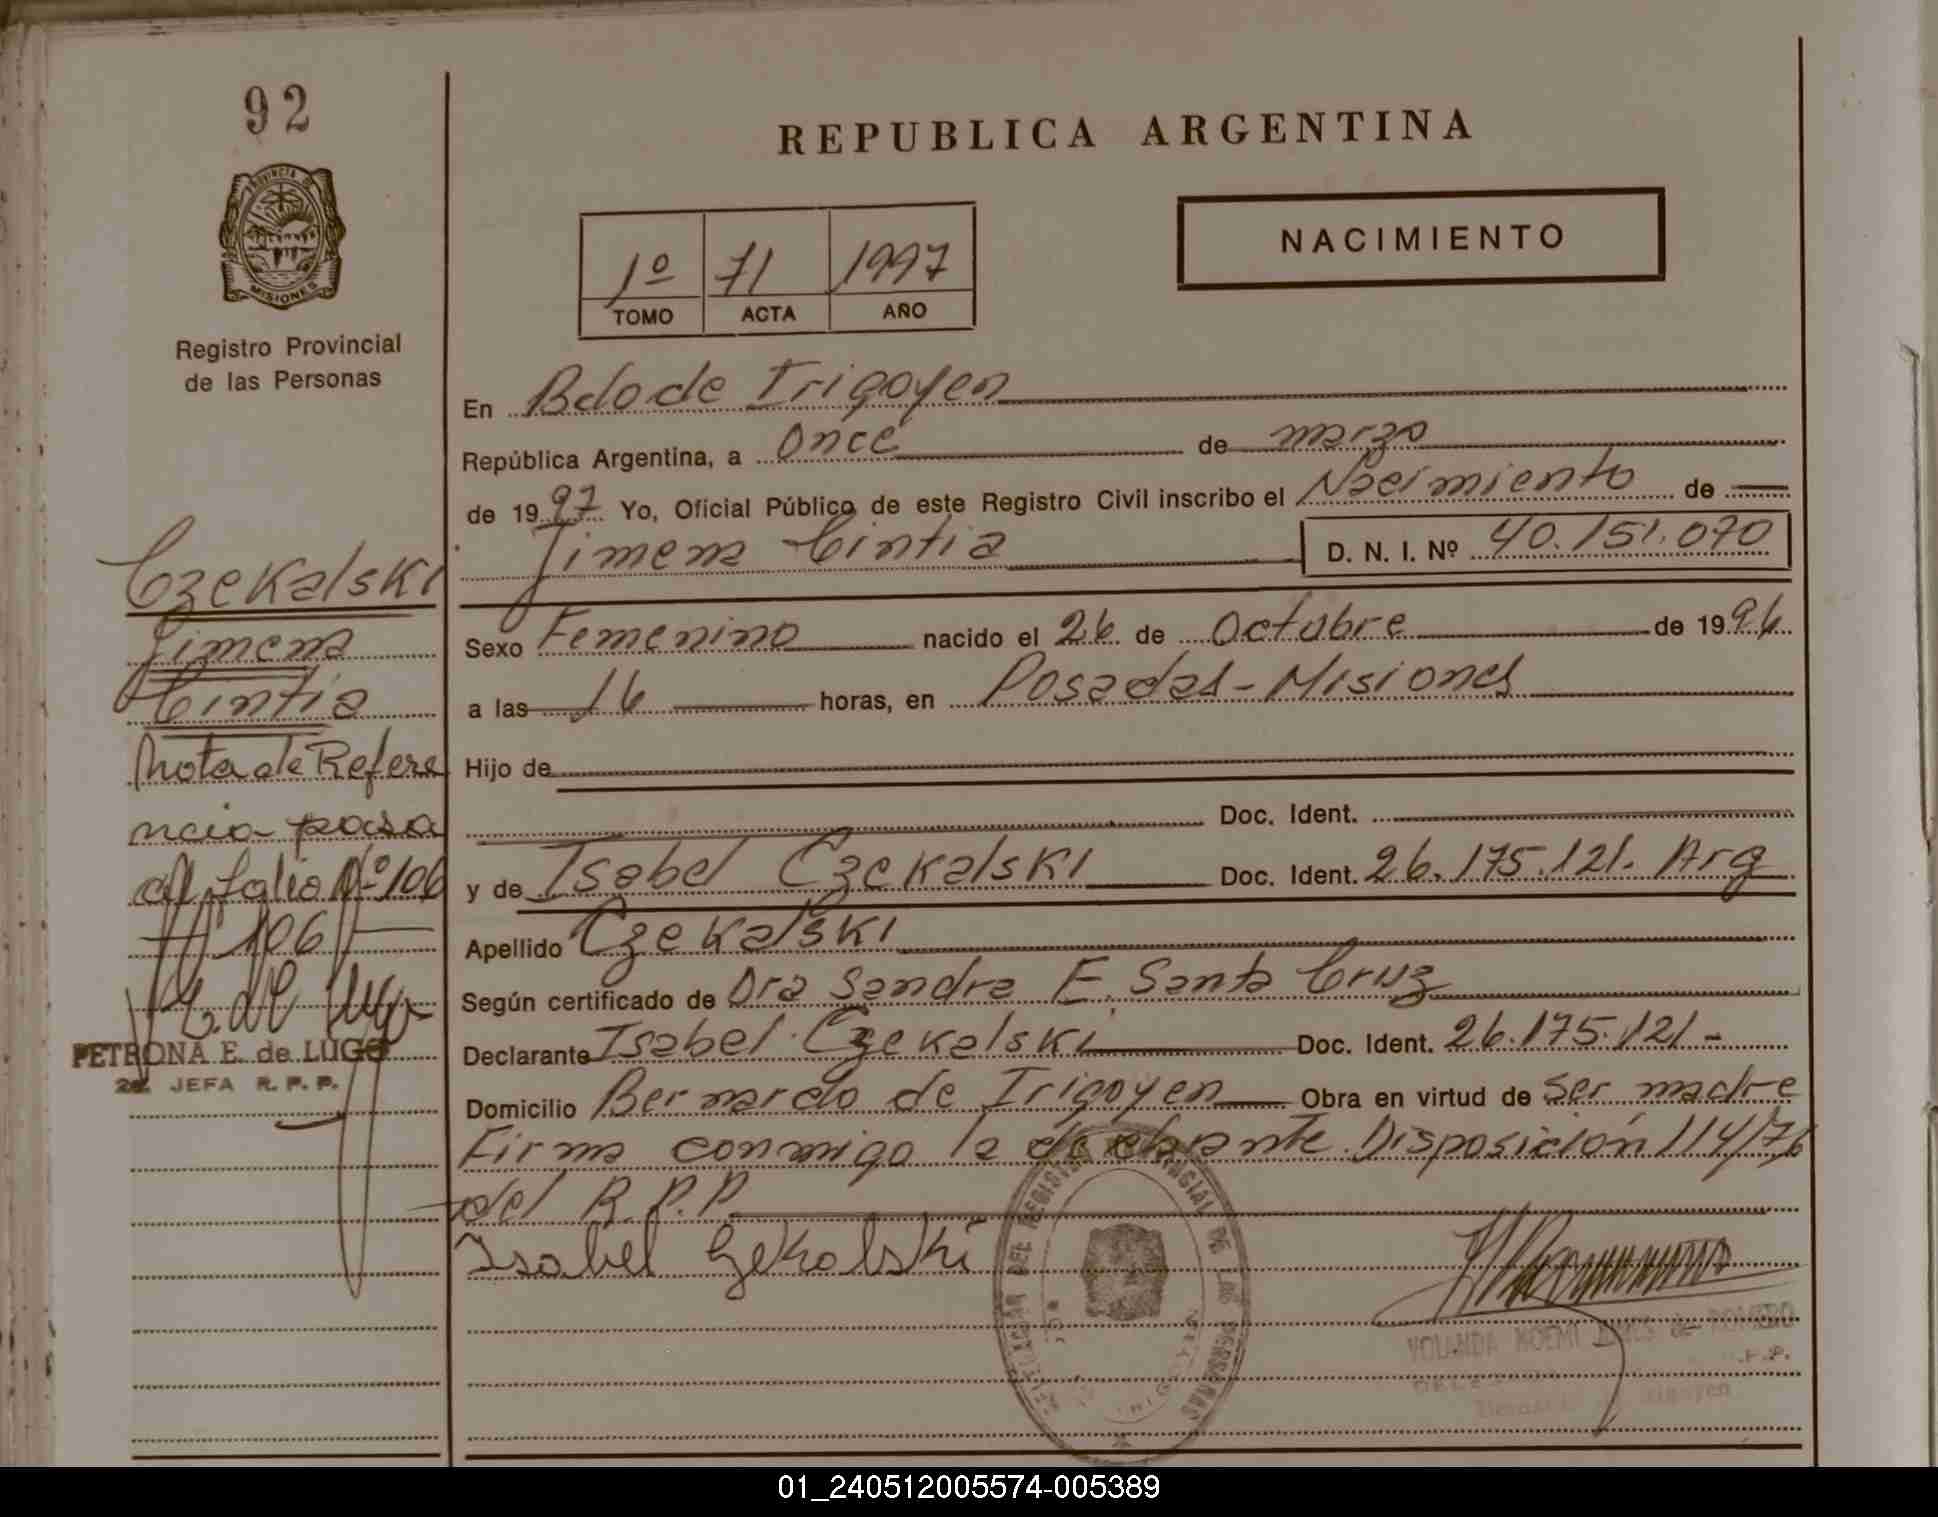 92
PROVINCIA DE
MISIONES
Registro Provincial
de las Personas
REPUBLICA ARGENTINA
1º 71 1997
TOMO ACTA AÑO
NACIMIENTO
En Bdo de Irigoyen
República Argentina, a Once de marzo
de 1997 Yo, Oficial Público de este Registro Civil inscribo el Nacimiento de
Jimena Cintia D. N. I. Nº 40.151.070
Sexo Femenino nacido el 26 de Octubre de 1996
a las 16 horas, en Posadas - Misiones
Hijo de
Doc. Ident.
y de Isabel Czekalski Doc. Ident. 26.175.121. Arg
Apellido Czekalski
Según certificado de Dra Sandra E. Santa Cruz
Declarante Isabel Czekalski Doc. Ident. 26.175.121-
Domicilio Bernardo de Irigoyen Obra en virtud de ser madre
Firma conmigo la Disposición 114/76
del R.P.P.
Isabel Czekalski
Czekalski
Jimena
Cintia
Nota de Refere
ncia pasa
al folio Nº 106
106
PETRONA E. de LUGO
JEFA R. P. P.
DEL REGISTRO PROVINCIAL DE LAS PERSONAS
YOLANDA NOEMI de ROMERO
Irigoyen
01_240512005574-005389